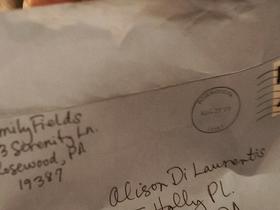 mily Fields
3 Serenity Ln.
osewood, PA
19387
Alison Di Laurentis
Holly PL.
PA